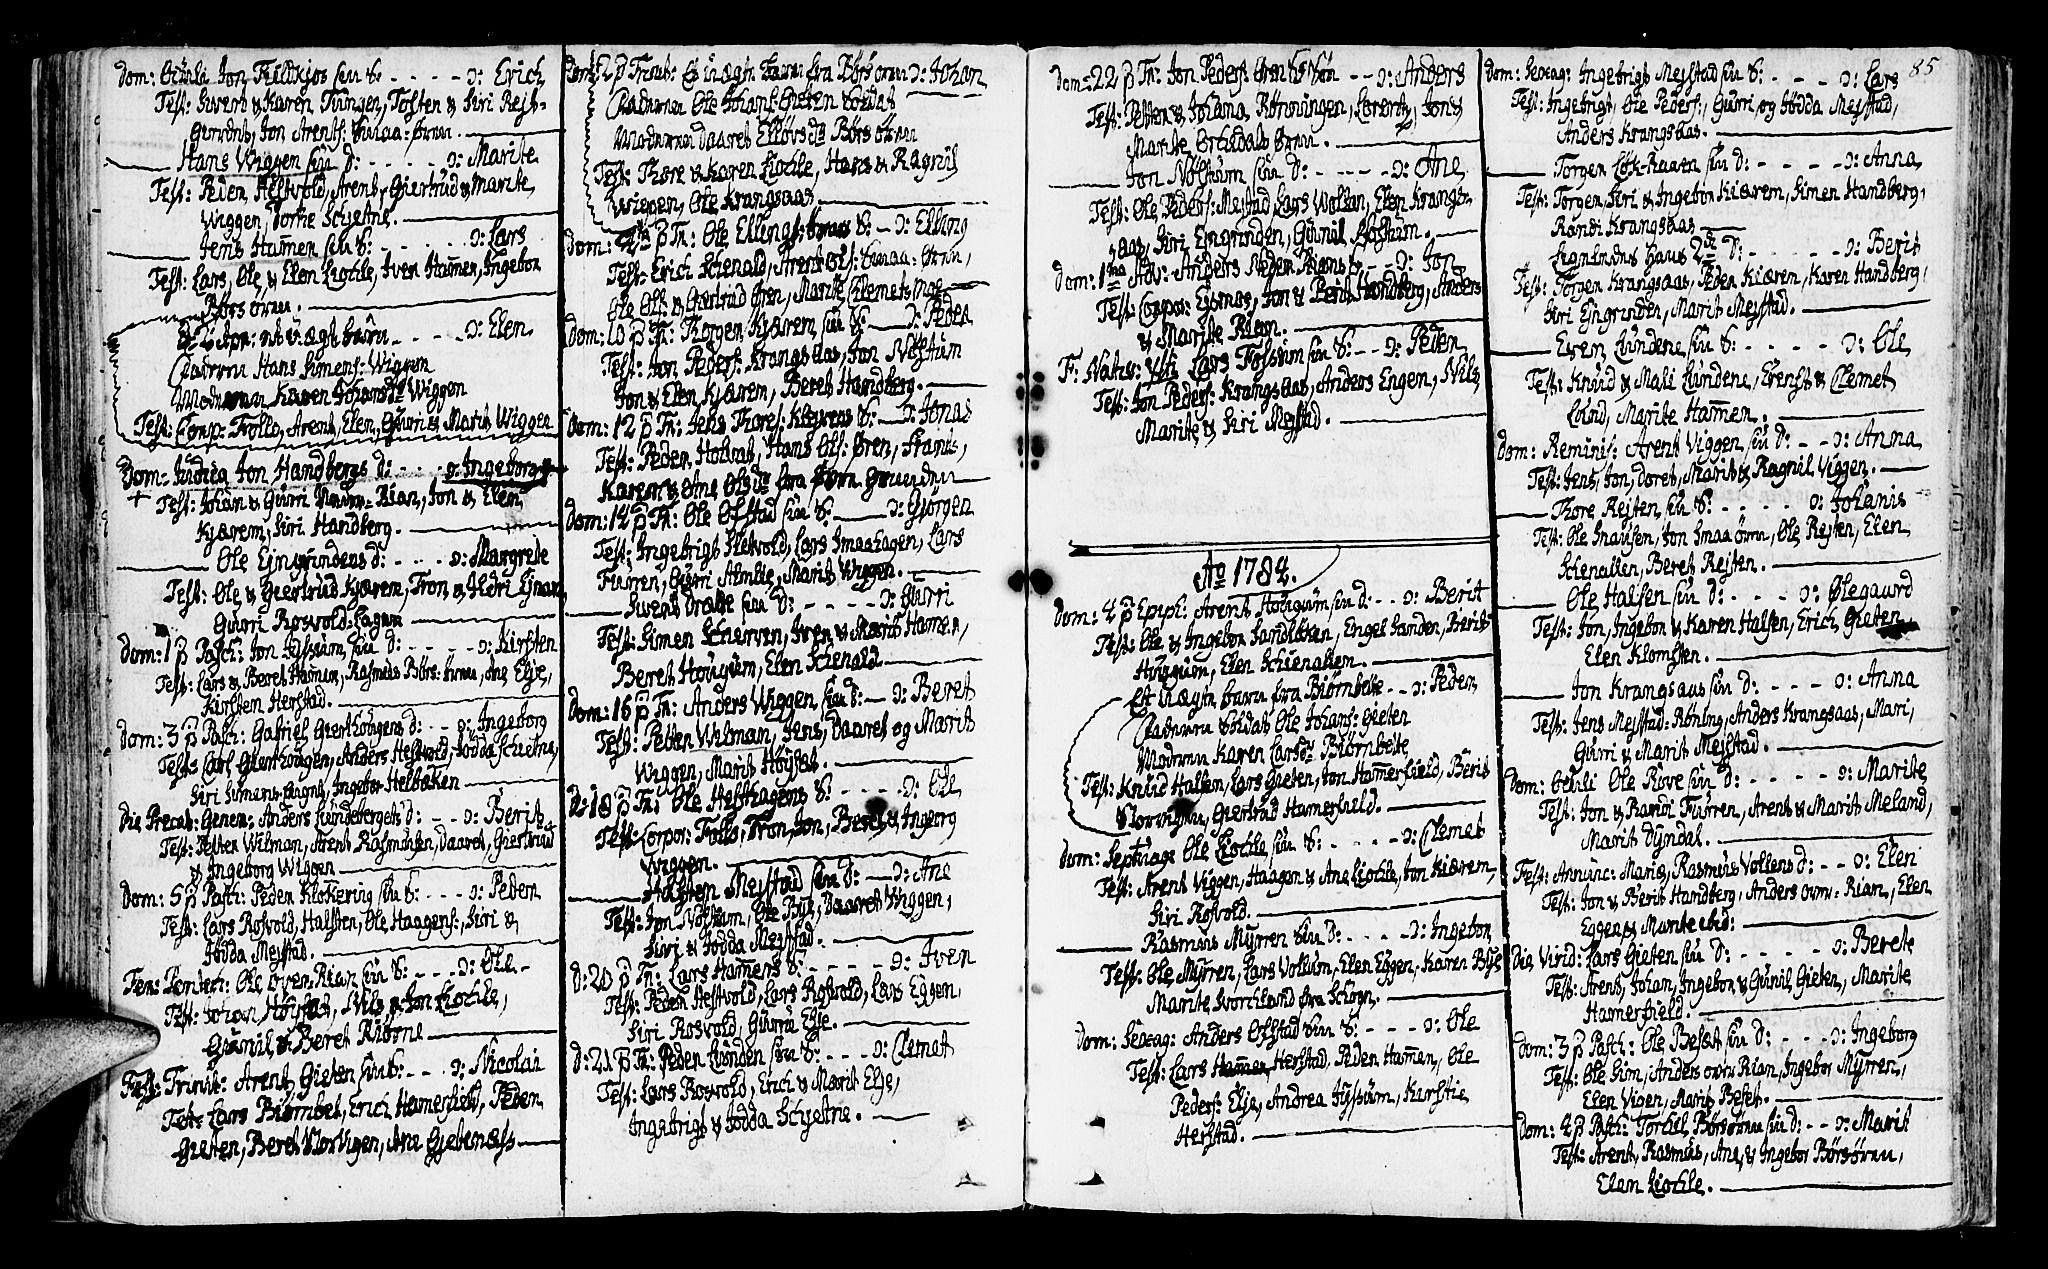 Dom: Jon Fieldkjos sin S: - - - - ɔ: Erich
Test: Siverñ & Karen Tungen, Tosten & Siri Rejs-
Jon Arents: Smaa-Ørnn.
Hans Wiggen sin D: - - - - ɔ: Marite
Test: Peder Hestvold, Arent, Giertrud & Marite
Wiggen, Dorthe Schjetne.
Jens Hamen sin S: - - - - ɔ: Lars
Test: Lars, Ole & Elen Liochle, Iver Hamen, Ingebor
Børsørnn.
Et barn - - - ɔ: Elen
Fadrnn Hans Simens: Wiggen
Modrnn Karen Johansdr Wiggen
Test: Corp: Follo, Arent, Elen, Gurri & Marit Wiggen
Dom: Judica Jon Handbergs D: - - - ɔ: Ingeborg
+ Test: Johan & Gurri Rian, Jon & Elen
Kjærem, Siri Handberg.
Ole Eingrindens D: - - - ɔ: Margrete
Test: Ole & Giertrud Kjærem, Tron & Sidri
Gurri Rosvold
Dom: 1 p Pasch: Jon Hyssum, sin D: - - - - ɔ: Kirsten
Test: Lars & Beret Hamen, Rasmus Børs-ørnn, Ane Elje,
Kirsten Herstad.
Dom: 3 p Pasch: Gabriel Gierthougens D: - - ɔ: Ingeborg
Test: Carl Gierthougen, Anders Hestvold, Jodda Schjetne,
Siri Simens Ingebor Helbakken
Die Precat: Gener: Anders Lundebergets D: - - ɔ: Berit
Test: Petter Wilman, Arent Rasmusen, Daaret, Giertrud
& Ingeborg Wiggen
Dom: 5 p Pasch: Peder Klokering sin S: - - - ɔ: Peder
Test: Lars Rosvold, Halsten, Ole Haagens: Siri &
Jodda Mejstad.
Fer: Pentec: Ole Øvre Rian sin S: - - - ɔ: Ole -
Test: Johan Høystad, Nils & Jon Liochle,
Gunnil & Beret
Fest: Trinit: Arent Gieten sin S: - - - ɔ: Nicolai
Test: Lars Biørnbet, Erich Hamerfield, Peder
Gieten, Beret Worvigen, Ane Gjetenæss
Dom: 2 p Trinit: Et uægte barn fra Børsørnn ɔ: Johan
Fadrnn Ole Johans: Gieten Soldat
Modrnn Daaret Ellevsdr Børsørnn
Test: Thore & Karen Liochle, Hans & Ragnil
Wiggen, Ole Krangsaas
Dom: 4 p Tr: Ole Ellings: S: - ɔ: Elling
Test: Erich Schenald, Arent Ols: Smaa-Ørnn,
Ole Ols: & Giertrud Øren, Marite Clemets
Dom: 10 p Tr: Torgen Kjærem sin S: - ɔ: Peder
Test: Jon Peders: Krangsaas, Jon Nostum
Jon & Elen Kjærem, Beret Handberg.
Dom: 12 p Tr: Jens Thores: S: - ɔ: Jonas
Test: Peder Hans Ols: Øren,
Karen & Ane Olsdr fra Øren
Dom: 14 p Tr: Ole Ofstad sin S: - ɔ: Gjørgen
Test: Ingebrigt Hestvold, Lars Smaahagen, Lars
Furren, Gurri Marit Wiggen.
Svend sin D: - - - - ɔ: Gurri
Test: Simen Iver & Marit Hamen,
Beret Hougum, Elen Schenald
Dom: 16 p Tr: Anders Wiggen sin D: - ɔ: Beret
Test: Petter Wilman, Jens, Daaret og Marit
Wiggen, Marit Høystad.
D: 18 p Tr: Ole S: - - - - ɔ: Ole
Test: Corpor: Follo, Tron, Jon, Beret & Ingeborg
Wiggen.
Halsten Mejstad sin D: - ɔ: Ane
Test: Jon Nostum, Ole Bye, Daaret Wiggen,
Siri & Jodda Mejstad.
D: 20 p Tr: Lars Hamens S: - - - - ɔ: Iver
Test: Peder Hestvold, Lars Rosvold, Lars Eggen,
Siri Rosvold, Gurru Elje.
D: 21 p Tr: Peder Lunden sin S: - - - ɔ: Clemet
Test: Lars Rosvold, Erich & Marit Elje,
Ingebrigt & Jodda Schjetne.
Dom: 22 p Tr: Jon Peders: Øren S: - - ɔ: Anders
Test: Petter & Johana Rønningen, Lorentz, Jon &
Marite Ørnn.
Jon Nøstum sin D: - - - - ɔ: Ane
Test: Ole Peders: Mejstad, Lars Wolden, Elen Krangs-
aas, Siri Eingrinden, Gunil Nostum.
Dom: 1ma Adv: Anders Neder Rians S: - - ɔ: Jon
Test: Corpor: Jon & Berit Handberg, Anders
& Marite Rian.
F: Nativ: Lars Fossum sin S: - - ɔ: Peder
Test: Jon Peders: Krangsaas, Anders Engen, Nils,
Marite & Siri Mejstad.
Ao 1784.
Dom: 4 p Epiph: Arent Hougum sin D: - - ɔ: Berit
Test: Ole & Ingebor Sandløkken, Engel Sanden, Berit
Huggum, Elen Schienalden.
Et uægte barn fra Biørnbete - - ɔ: Peder
Fadrnn Soldat Ole Johans: Gieten
Modrnn Karen Larsdr Biørnbete
Test: Knud Halsen, Lars Gieten, Jon Hamerfield, Berit
Worvigen, Giertrud Hamerfield.
Dom: Septuag: Ole Liochle sin S: - - - - ɔ: Clemet
Test: Arent Viggen, Haagen & Ane Liochle, Jon Kiærem,
Siri Rosvold.
Rasmus Myrren sin D: - - - ɔ: Ingebor
Test: Ole Myrren, Lars Voldum, Elen Eggen, Karen Bye
Marite fra Schogn.
Dom: Sexag: Anders Ofstad sin S: - - - ɔ: Ole
Test: Lars Herstad, Peder Hamen, Ole
Peders: Elje, Andrea Hyssum, Kirstie
Herstad.
85
Dom: Sexag: Ingebrigt Mejstad sin S: - - - ɔ: Lars
Test: Ingebrigt, Ole Peders:, Gurri, og Jodda Mejstad,
Anders Krangsaas.
Torgen Løk-Raaen sin D: - - - - ɔ: Anna
Test: Torgen, Siri & Ingebor Kiærem, Simen Handberg,
Randi Krangsaas
haus 2de D: - - - - ɔ: Berit
Test: Torgen Krangsaas, Peder Kiærem, Karen Handberg,
Siri Eingrinden, Marit Mejstad.
Even Lundene sin S: - - - - ɔ: Ole
Test: Knud & Mali Lundene, Ernst & Clemet
Lund, Marite Hamen.
Dom: Reminis: Arent Viggen, sin D: - - ɔ: Anna
Test: Jens, Jon, Doret, Marit & Ragnil Viggen.
Thore Rejten, sin S: - - - - - ɔ: Johanis
Test: Ole Snausen, Jon Smaaørnn, Ole Rejten, Elen
Schenallen, Beret Rejten.
Ole Halsen sin D: - - - - ɔ: Olegaard
Test: Jon, Ingebor & Karen Halsen, Erich Gieten,
Elen Klomsten.
Jon Krangsaas sin D: - - - - ɔ: Anna
Test: Jens Mejstad-Røning, Anders Krangsaas, Mari,
Gurri & Marit Mejstad.
Dom: Oculi Ole Riove sin D: - - - - ɔ: Marite
Test: Jon & Randi Furren, Arent & Marit Meland,
Marit Dyndal.
Fest: Annunc: Mariæ, Rasmus Vollens D: - - ɔ: Elen
Test: Jon & Berit Handberg, Anders ovre Rian, Elen
Eggen & Marite ibid:
Die Virid: Lars Gieten sin D: - - - - ɔ: Berete
Test: Arent, Johan, Ingebor & Gunil Gieten, Marite
Hamerfield.
Dom: 3 p Pasch: Ole Beset sin D: - - - ɔ: Ingeborg
Test: Ole Sim, Anders ovre Rian, Ingebor Myrren,
Elen Vigen, Marit Beset.
Dom: 4 p Pasch: Torchil Børsørnn sin D: - - ɔ: Marit
Test: Arent, Rasmus, Ane, & Ingebor Børsørnn,
Elen Liochle.